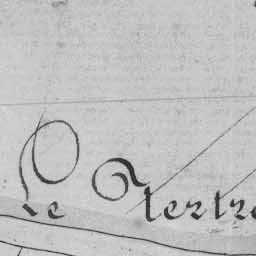 Le Tertre